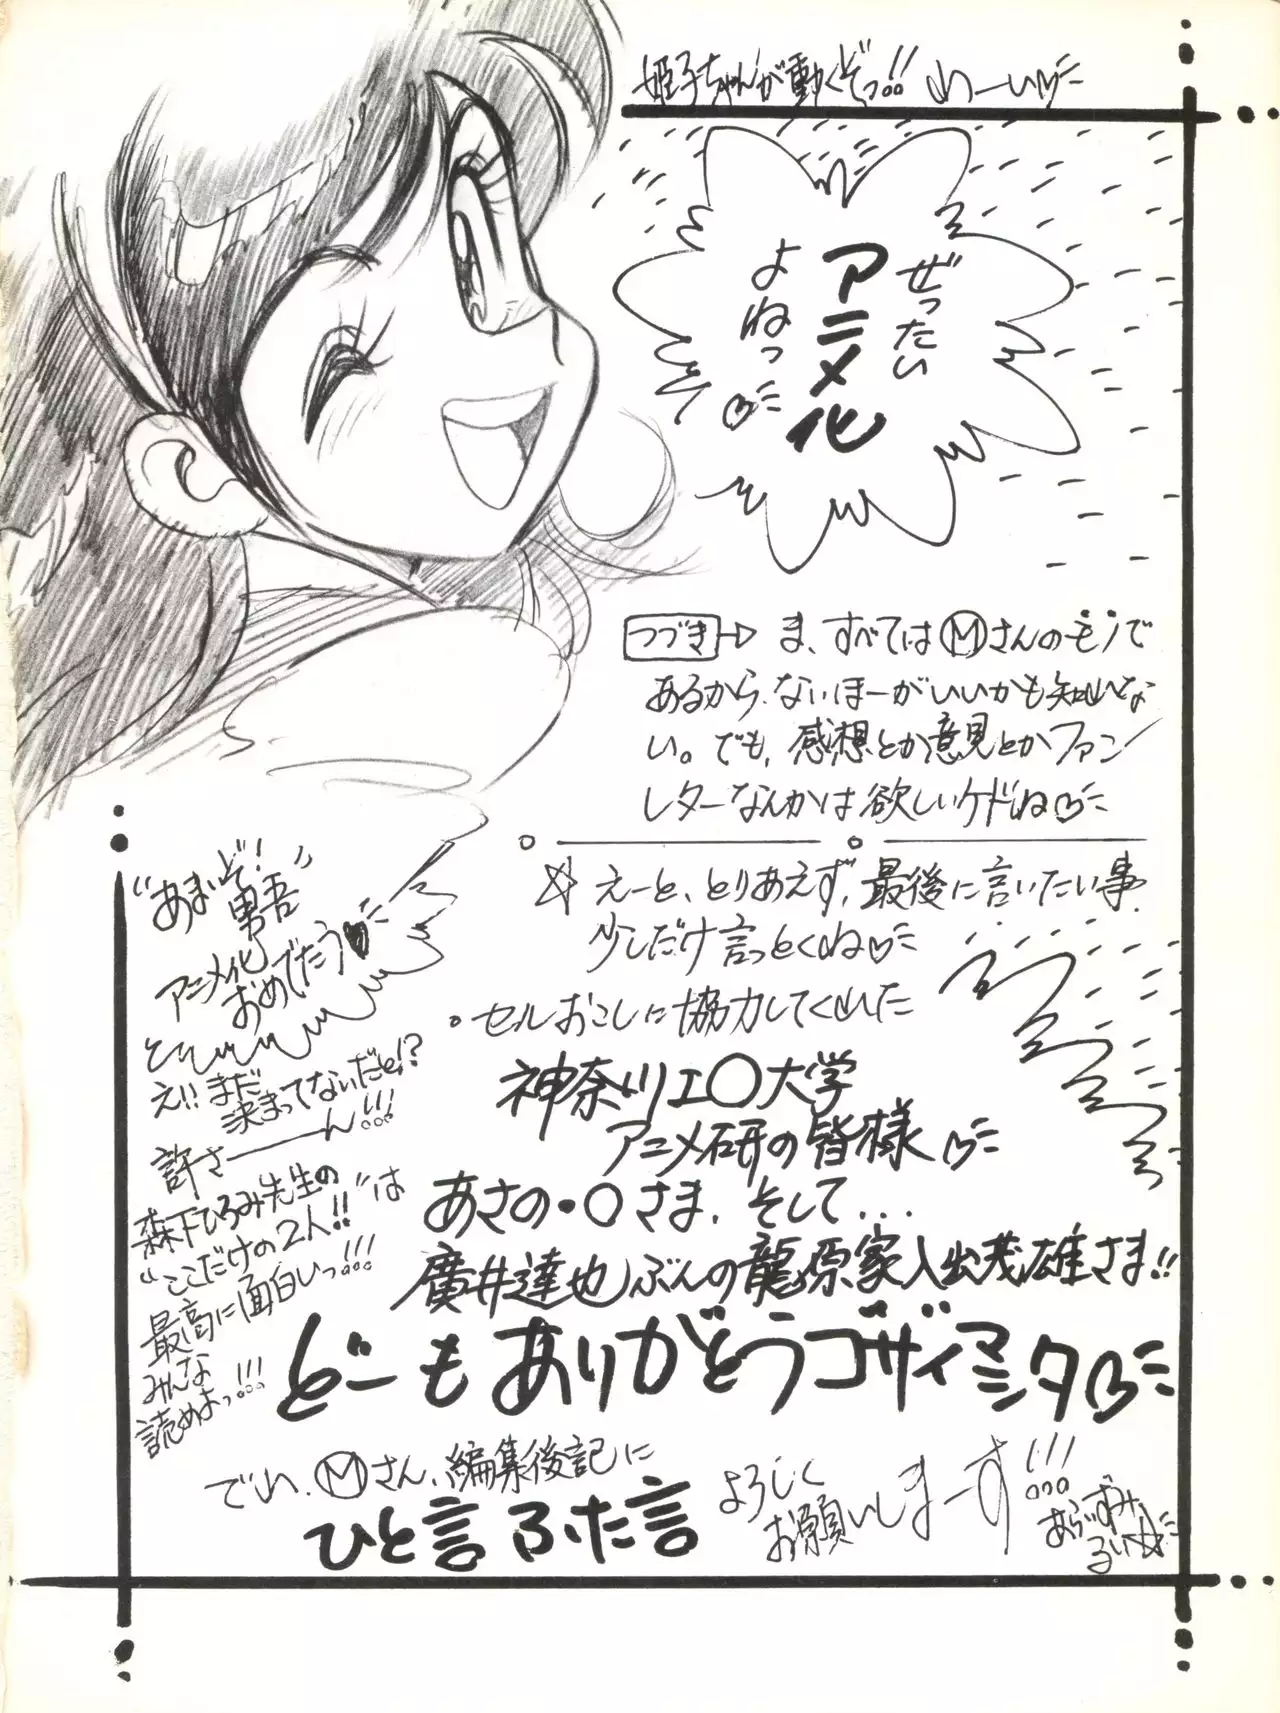 姫子ちゃんが動くぞっ!! わーい♡
ぜったい
アニメ化
よねっ♡
つづき→ ま、すべてはⓂさんのモノで
あるから、ないほーがいいかも知れな
い。でも、感想とか意見とかファン
レターなんかは欲しいケドね♡
☆ えーと、とりあえず、最後に言いたい事
少しだけ言っとくね♡
。セルおこしに協力してくれた
神奈川工〇大学
アニメ研の皆様♡
あさの・〇さま、そして...
廣井達也ぶんの龍原家入出茂雄さま!!
どーもありがとうゴザイマシタ♡
"あまいぞ!
男吾"
アニメ化
おめでたう♥
え!!まだ
決まってないだと!?
許さーーん!!!
森下ひろみ先生の
"ここだけの2人!!"は
最高に面白いっ!!!
みんな
読めよっ!!!
でわ、Ⓜさん、編集後記に
ひと言ふた言
よろしく
お願いしまーす!!!
あらいずみ
るい☆